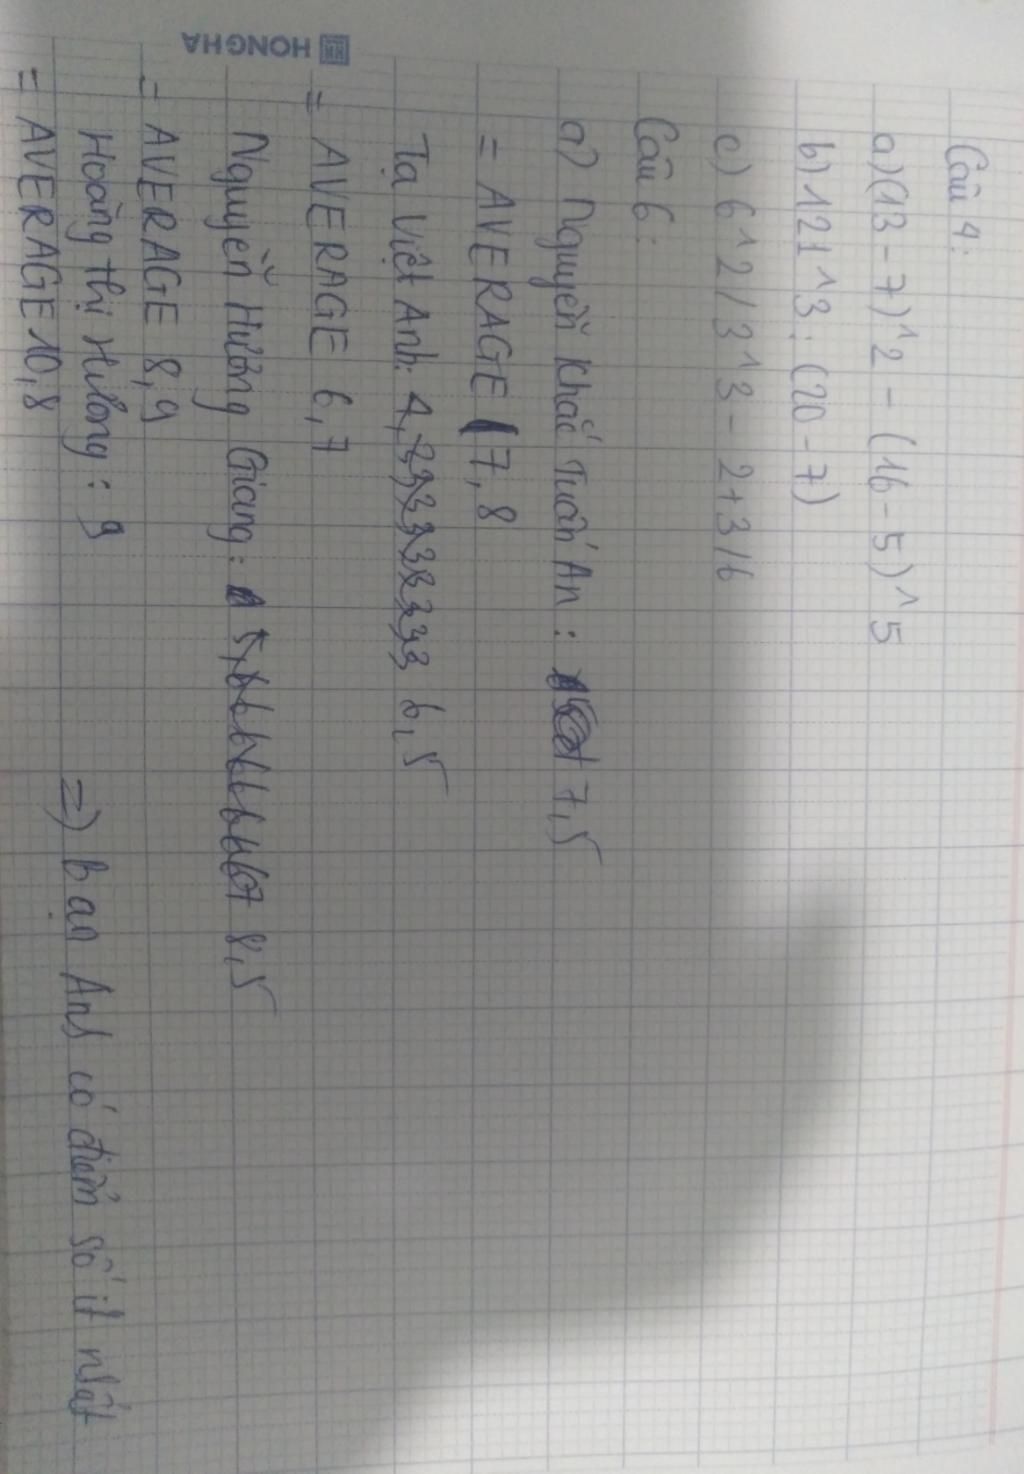 Câu 4:
a) (13 - 7)^2 - (16 - 5)^5
b) 121^3 : (20 - 7)
c) 6^2 / 3^3 - 2 + 3 / 6
Câu 6:
a) Nguyễn Khắc Tuấn An : 7,5
= AVERAGE 7,8
Tạ Việt Anh: 6,5
= AVERAGE 6,7
Nguyễn Hương Giang: 8,5
= AVERAGE 8,9
Hoàng thị Hương : 9
= AVERAGE 10,8
=) bạn Anh có điểm số ít nhất
HONG HA